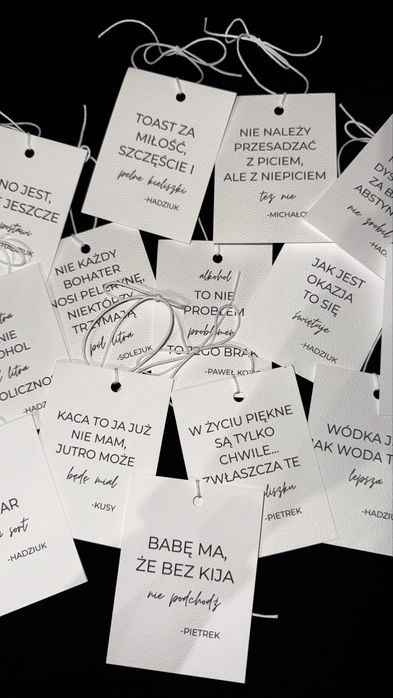 TOAST ZA
MIŁOŚĆ,
SZCZĘŚCIE I
pełne kieliszki
-HADZIUK
NIE NALEŻY
PRZESADZAĆ
Z PICIEM,
ALE Z NIEPICIEM
też nie
-MICHAŁO
NO JEST,
JESZCZE
NIE KAŻDY
BOHATER
NOSI PELERYNĘ,
NIEKTÓRZY
TRZYMAJĄ
pół litra
-SOLEJUK
alkohol
TO NIE
PROBLEM
problemem
TO JEGO BRAK
-PAWEŁ KO
JAK JEST
OKAZJA
TO SIĘ
świętuje
-HADZIUK
ZA B
ABSTYN
nie zrobił
-HAD
litra
NIE
OHOL
litra
OLICZNO
-HADZ
KACA TO JA JUŻ
NIE MAM,
JUTRO MOŻE
będę miał
-KUSY
W ŻYCIU PIĘKNE
SĄ TYLKO
CHWILE...
ZWŁASZCZA TE
-PIETREK
WÓDKA J
JAK WODA T
lepsza
-HADZIU
AR
sort
-HADZIUK
BABĘ MA,
ŻE BEZ KIJA
nie podchodź
-PIETREK